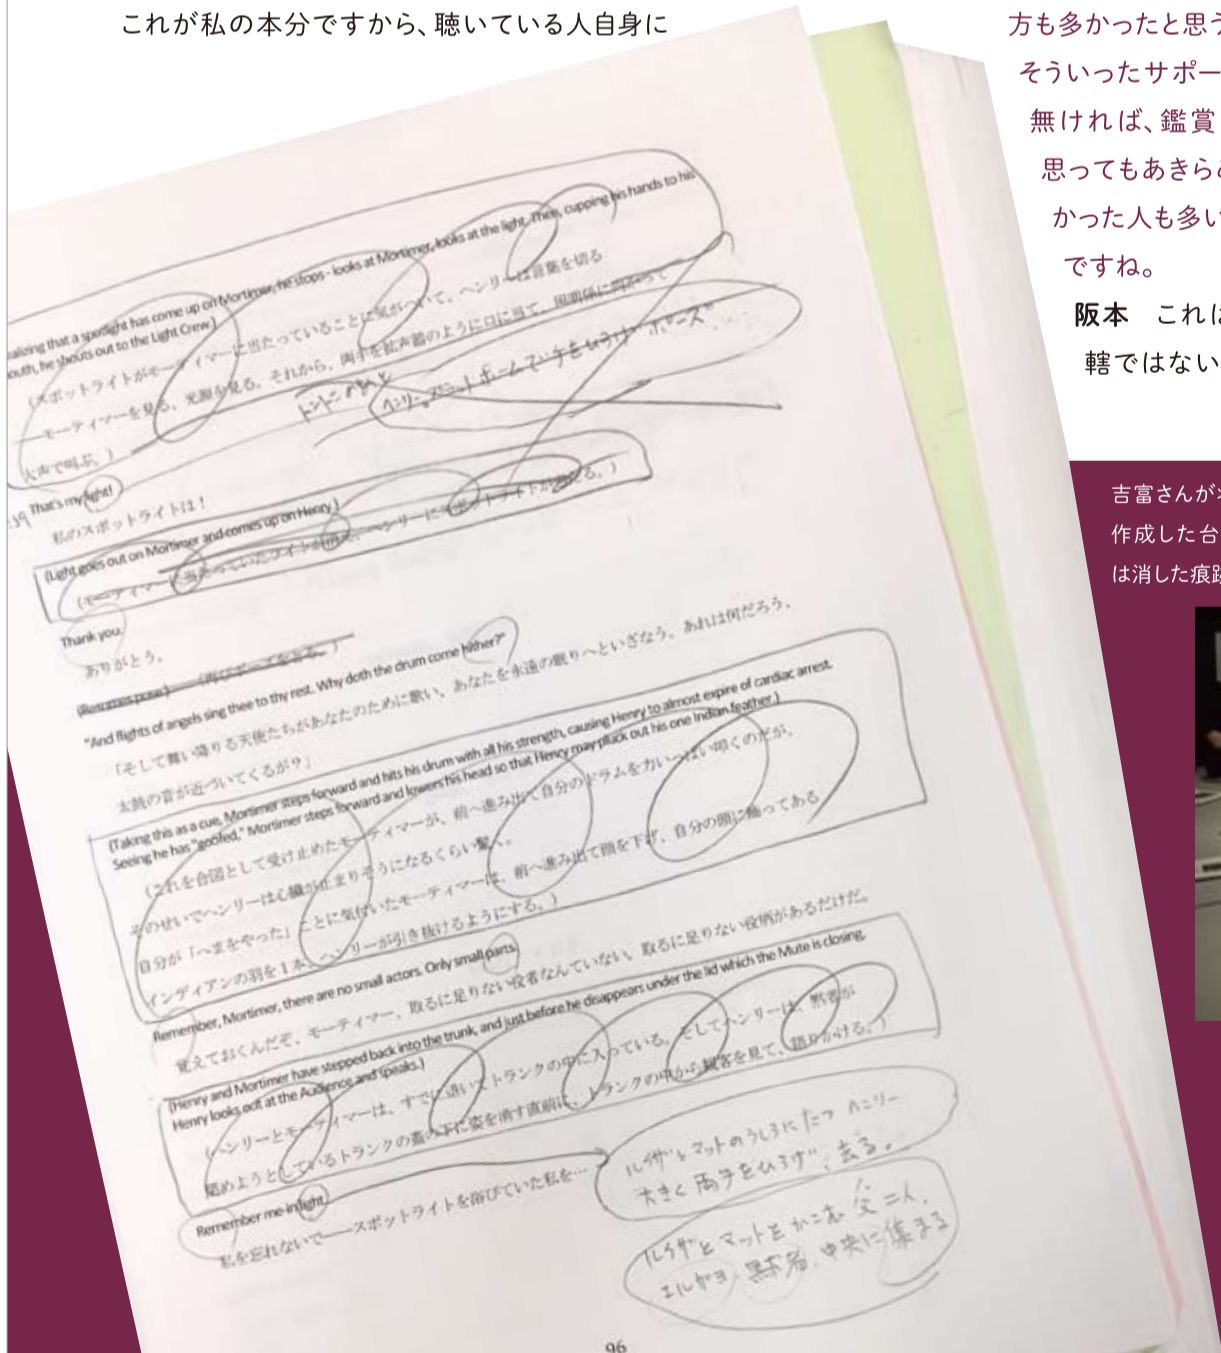 これが私の本分ですから、聴いている人自身に
方も多かったと思う
そういったサポー
無ければ、鑑賞
思ってもあきら
かった人も多い
ですね。
阪本 これは
轄ではない
吉富さんが
作成した台
は消した痕跡
alizing that a spotlight has come up on Mortimer, he stops - looks at Mortimer, looks at the light. Then, cupping his hands to his
outh, he shouts out to the Light Crew.)
(スポットライトがモーティマーに当たっていることに気がついて、ヘンリーは言葉を切る
――モーティマーを見る、光源を見る。それから、両手を拡声器のように口に当て、照明係に向かって
大声で叫ぶ。)
ヘンリー
That's my light!
私のスポットライトは!
(Light goes out on Mortimer and comes up on Henry.)
(モーティマーに当たっていたライトが消え、ヘンリーにスポットライトが当たる。)
Thank you.
ありがとう。
(Resumes pose.) (再びポーズをとる。)
"And flights of angels sing thee to thy rest. Why doth the drum come hither?"
「そして舞い降りる天使たちがあなたのために歌い、あなたを永遠の眠りへといざなう。あれは何だろう、
太鼓の音が近づいてくるが?」
(Taking this as a cue, Mortimer steps forward and hits his drum with all his strength, causing Henry to almost expire of cardiac arrest.
Seeing he has "goofed," Mortimer steps forward and lowers his head so that Henry may pluck out his one Indian feather.)
(これを合図として受け止めたモーティマーが、前へ進み出て自分のドラムを力いっぱい叩くのだが、
そのせいでヘンリーは心臓が止まりそうになるくらい驚く。
自分が「へまをやった」ことに気付いたモーティマーは、前へ進み出て頭を下げ、自分の頭に飾ってある
インディアンの羽を1本、ヘンリーが引き抜けるようにする。)
Remember, Mortimer, there are no small actors. Only small parts.
覚えておくんだぞ、モーティマー、取るに足りない役者なんていない、取るに足りない役柄があるだけだ。
(Henry and Mortimer have stepped back into the trunk, and just before he disappears under the lid which the Mute is closing,
Henry looks out at the Audience and speaks.)
(ヘンリーとモーティマーは、すでに退いてトランクの中に入っている。そしてヘンリーは、黙者が
閉めようとしているトランクの蓋の下に姿を消す直前に、トランクの中から観客を見て、語りかける。)
Remember me-in light.
私を忘れないで――スポットライトを浴びていた私を…
ルイザとマットのうしろにたつ ヘンリー
大きく両手をひろげ、去る。
ルイザとマットをかこむ 父二人、
エルガヨ、黙者、中央に集まる
96